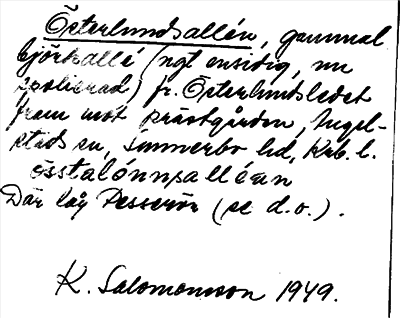 Österlundsallén, gammal
björkallé (ngt ensidig, nu
spolierad) fr. Österlundsledet
fram mot prästgården, Ingel-
stads sn, Sunnerbo hd, Krb. l.
össtalónnsalléan
Där låg (se d.o.).
K. Salomonsson 1949.